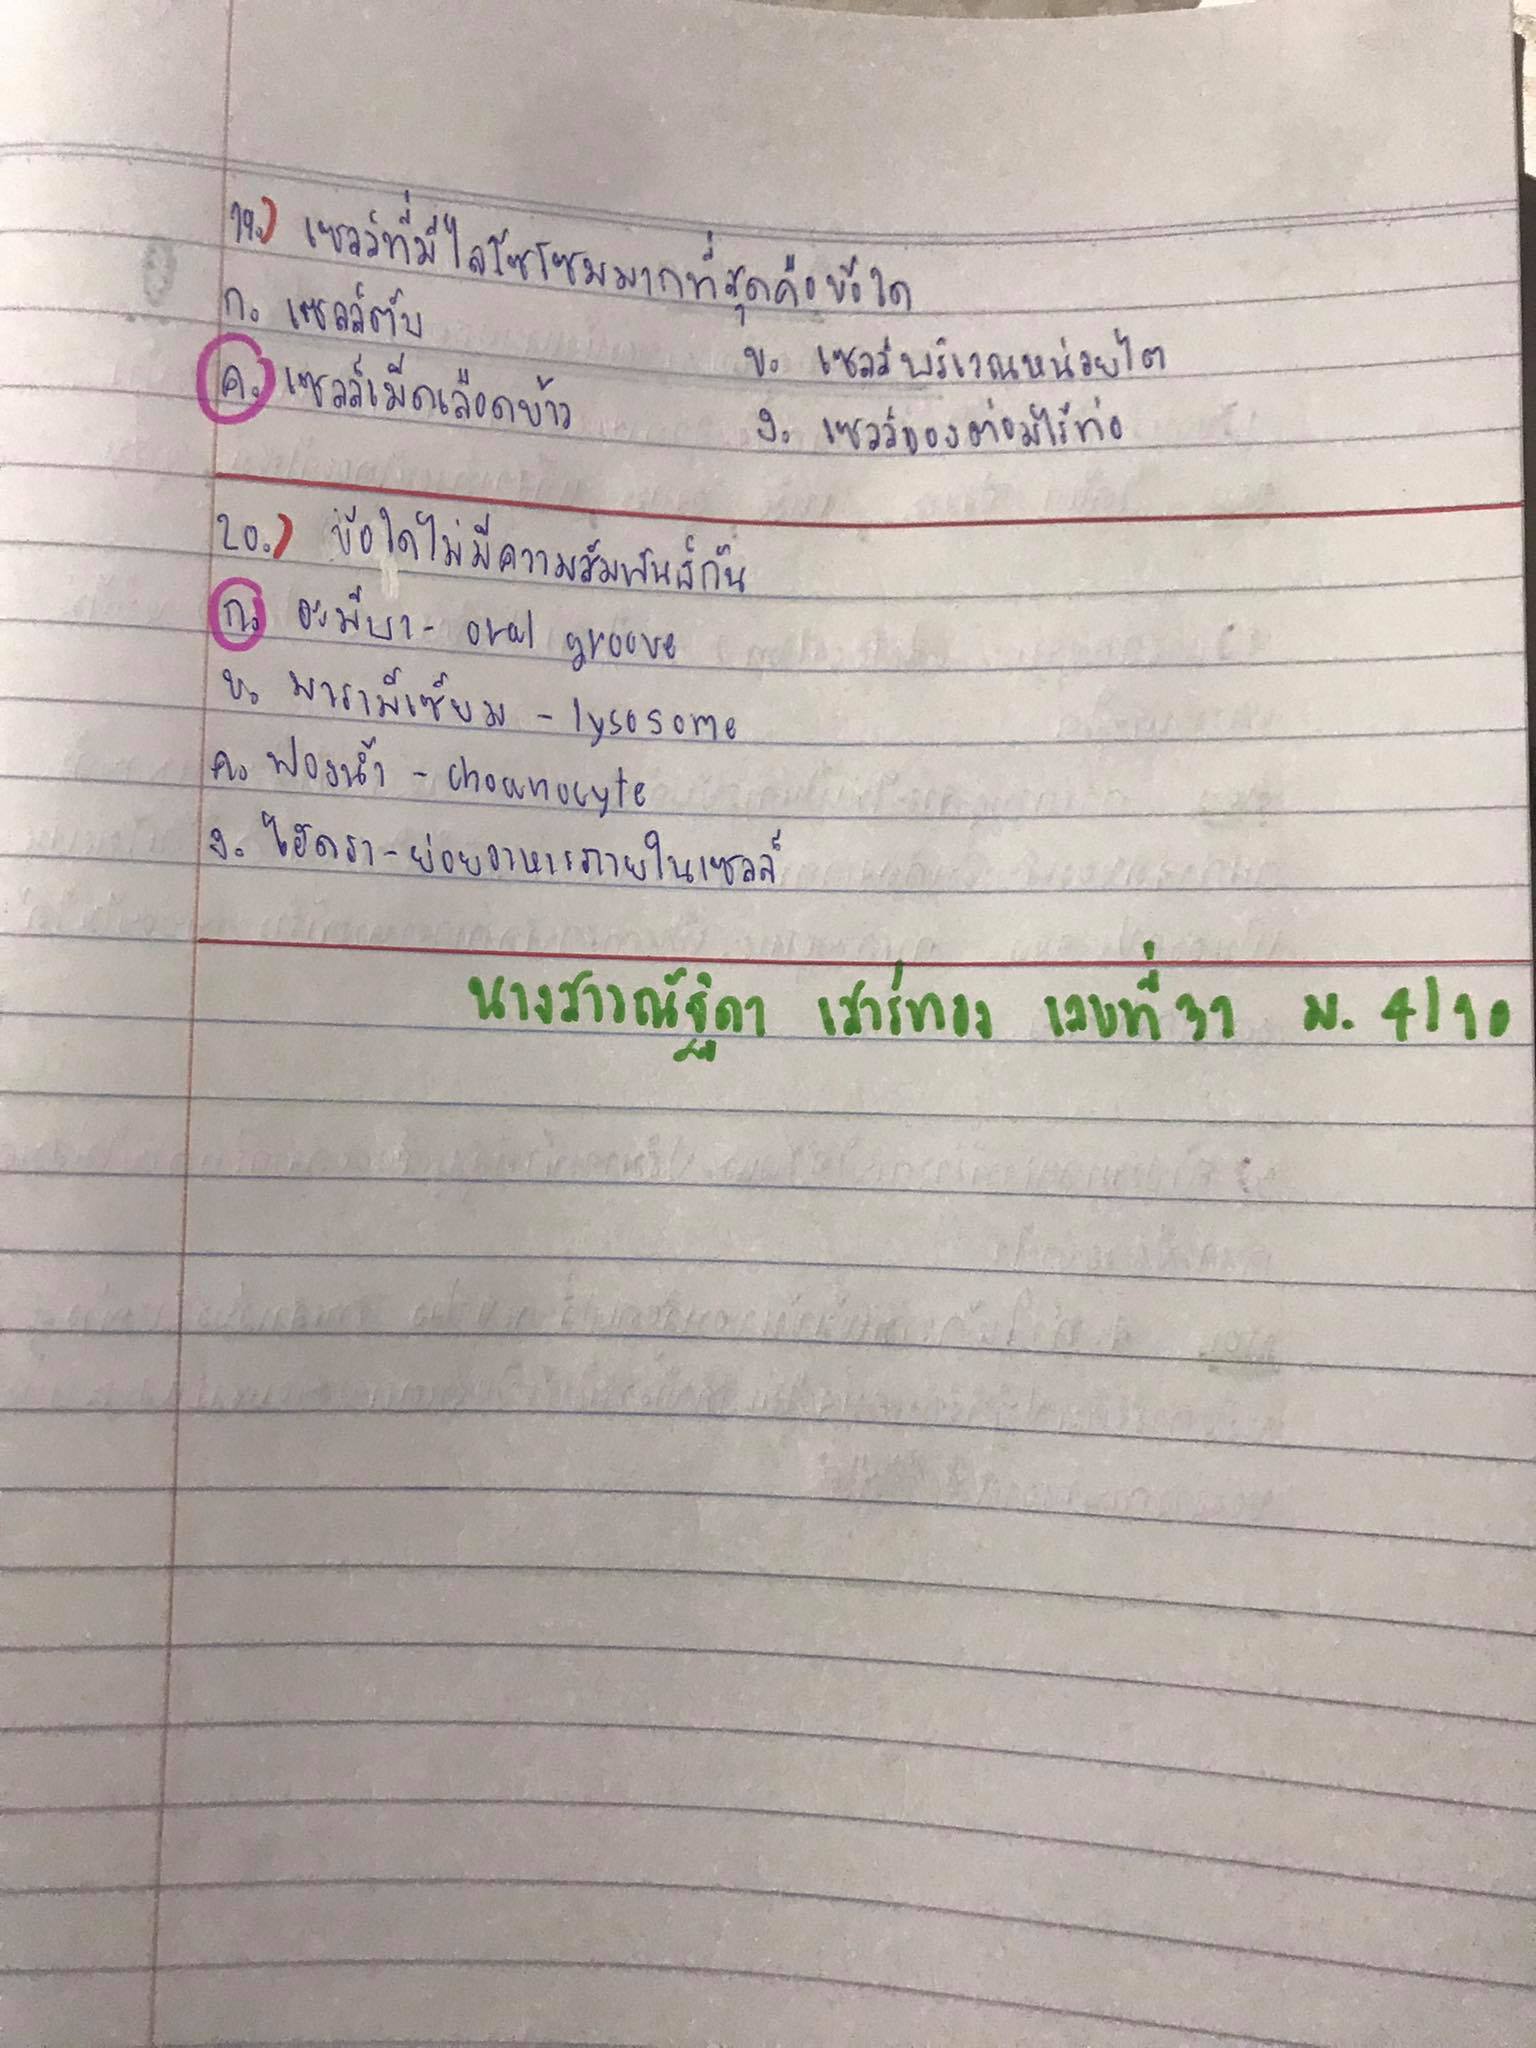 19.) เซลล์ที่มีไลโซโซมมากที่สุดคือข้อใด
ก. เซลล์ตับ
ข. เซลล์บริเวณหน่วยไต
ค. เซลล์เม็ดเลือดขาว
ง. เซลล์ของต่อมไร้ท่อ
20.) ข้อใดไม่มีความสัมพันธ์กัน
ก. อะมีบา - oral groove
ข. พารามีเซียม - lysosome
ค. ฟองน้ำ - choanocyte
ง. ไฮดรา - ย่อยอาหารภายในเซลล์
นางสาวณัฐิดา เสาร์ทอง เลขที่ 31 ม. 4/10